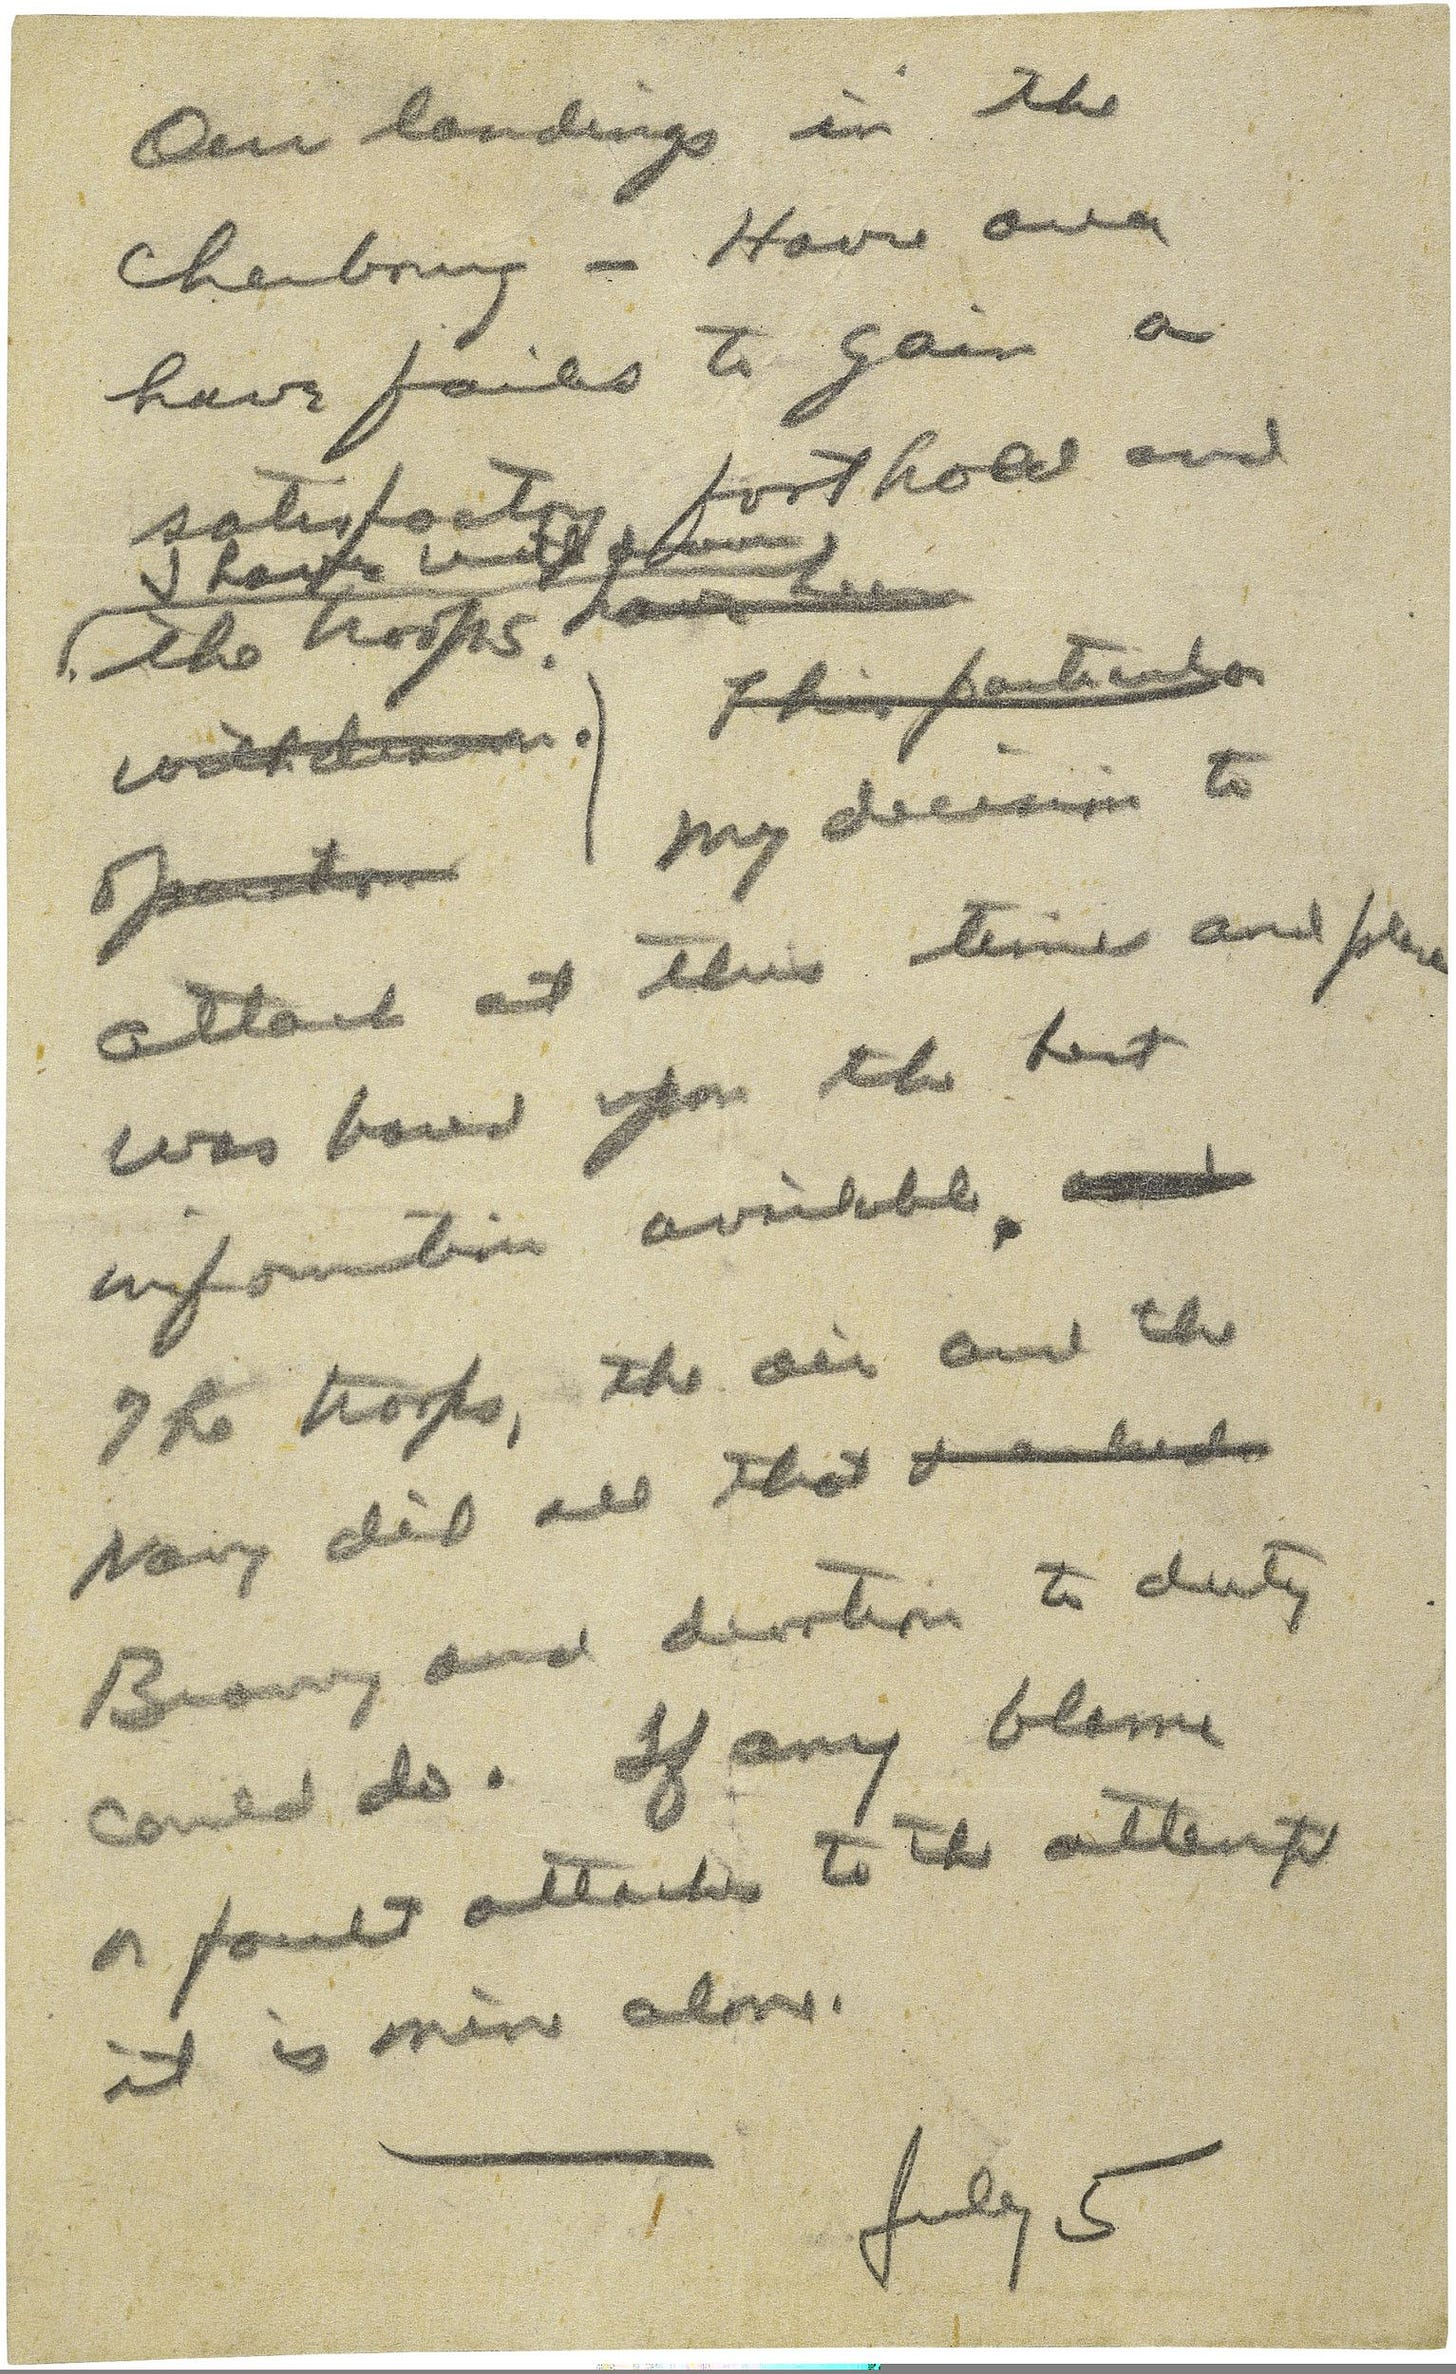 Our landings in the
Cherbourg - Havre area
have failed to gain a
satisfactory foothold and
I have withdrawn
the troops. have been
This particular
withdrawn.
my decision to
operation
attack at this time and place
was based upon the best
information available. and
The troops, the air and the
Navy did all that
Bravery and devotion to duty
could do. If any blame
or fault attaches to the attempt
it is mine alone.
July 5